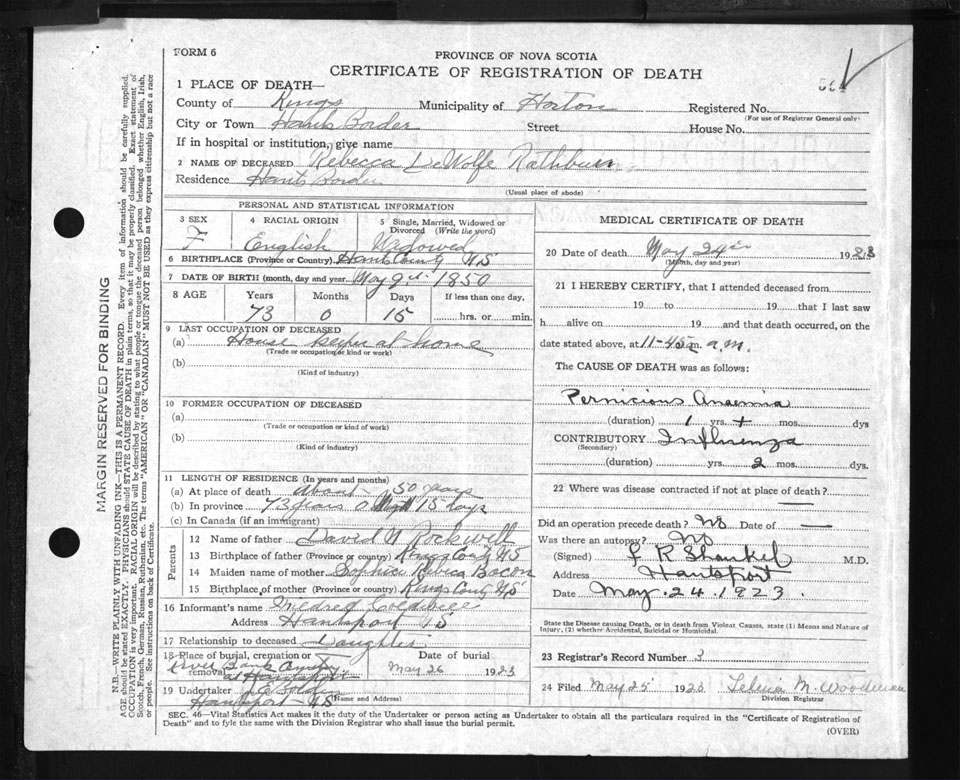 FORM 6
PROVINCE OF NOVA SCOTIA
CERTIFICATE OF REGISTRATION OF DEATH
1 PLACE OF DEATH—
County of Kings Municipality of Horton Registered No.
(For use of Registrar General only)
City or Town Hants Border Street House No.
If in hospital or institution, give name
2 NAME OF DECEASED Rebecca DeWolfe Rathburn
Residence Hants Border
(Usual place of abode)
PERSONAL AND STATISTICAL INFORMATION
3 SEX 4 RACIAL ORIGIN 5 Single, Married, Widowed or Divorced (Write the word)
F English Widowed
6 BIRTHPLACE (Province or Country) Hants County NS
7 DATE OF BIRTH (month, day and year) May 9th 1850
8 AGE Years Months Days If less than one day,
73 0 15 hrs. or min.
9 LAST OCCUPATION OF DECEASED
(a) House keeper at home
(Trade or occupation or kind or work)
(b)
(Kind of industry)
10 FORMER OCCUPATION OF DECEASED
(a)
(Trade or occupation or kind or work)
(b)
(Kind of industry)
11 LENGTH OF RESIDENCE (In years and months)
(a) At place of death About 50 years
(b) In province 73 years 0 15 days
(c) In Canada (if an immigrant)
Parents
12 Name of father David N Rockwell
13 Birthplace of father (Province or country) Kings County NS
14 Maiden name of mother Sophia Rebica Bacon
15 Birthplace of mother (Province or country) Kings County NS
16 Informant's name Mildred Coldwell
Address Hantsport NS
17 Relationship to deceased Daughter
18 Place of burial, cremation or removal Date of burial
River Bank
at Hantsport May 26 1923
19 Undertaker
(Name and Address)
Hantsport NS
MEDICAL CERTIFICATE OF DEATH
20 Date of death May 24th 1923
(Month, day and year)
21 I HEREBY CERTIFY, that I attended deceased from
19 to 19 that I last saw
h alive on 19 and that death occurred, on
date stated above, at 11-45 m. a.m.
The CAUSE OF DEATH was as follows:
Pernicious Anaemia
(duration) 1 yrs. + mos. dys
CONTRIBUTORY Influenza
(Secondary)
(duration) yrs. 2 mos. dys.
22 Where was disease contracted if not at place of death?
Did an operation precede death? No Date of —
Was there an autopsy? No
(Signed) F R Shankel M.D.
Address Hantsport
Date May. 24. 1923.
State the Disease causing Death, or in death from Violent Causes, state (1) Means and Nature of
Injury, (2) whether Accidental, Suicidal or Homicidal.
23 Registrar's Record Number 3
24 Filed May 25 1923 M. Woodman
Division Registrar
SEC. 46—Vital Statistics Act makes it the duty of the Undertaker or person acting as Undertaker to obtain all the particulars required in the "Certificate of Registration of
Death" and to fyle the same with the Division Registrar who shall issue the burial permit.
(OVER)
MARGIN RESERVED FOR BINDING
N.B.—WRITE PLAINLY, WITH UNFADING INK—THIS IS A PERMANENT RECORD. Every item of information should be carefully supplied.
AGE should be stated EXACTLY. PHYSICIANS should STATE CAUSE OF DEATH in plain terms, so that it may be properly classified. Exact statement of
OCCUPATION is very important. RACIAL ORIGIN will be described by stating to what people or tongue the deceased person belonged whether English, Irish,
Scotch, French, German, Russian, Ruthenian, etc. The terms "AMERICAN" OR "CANADIAN" MUST NOT BE USED as they express citizenship but not a race
or people. See instructions on back of Certificate.